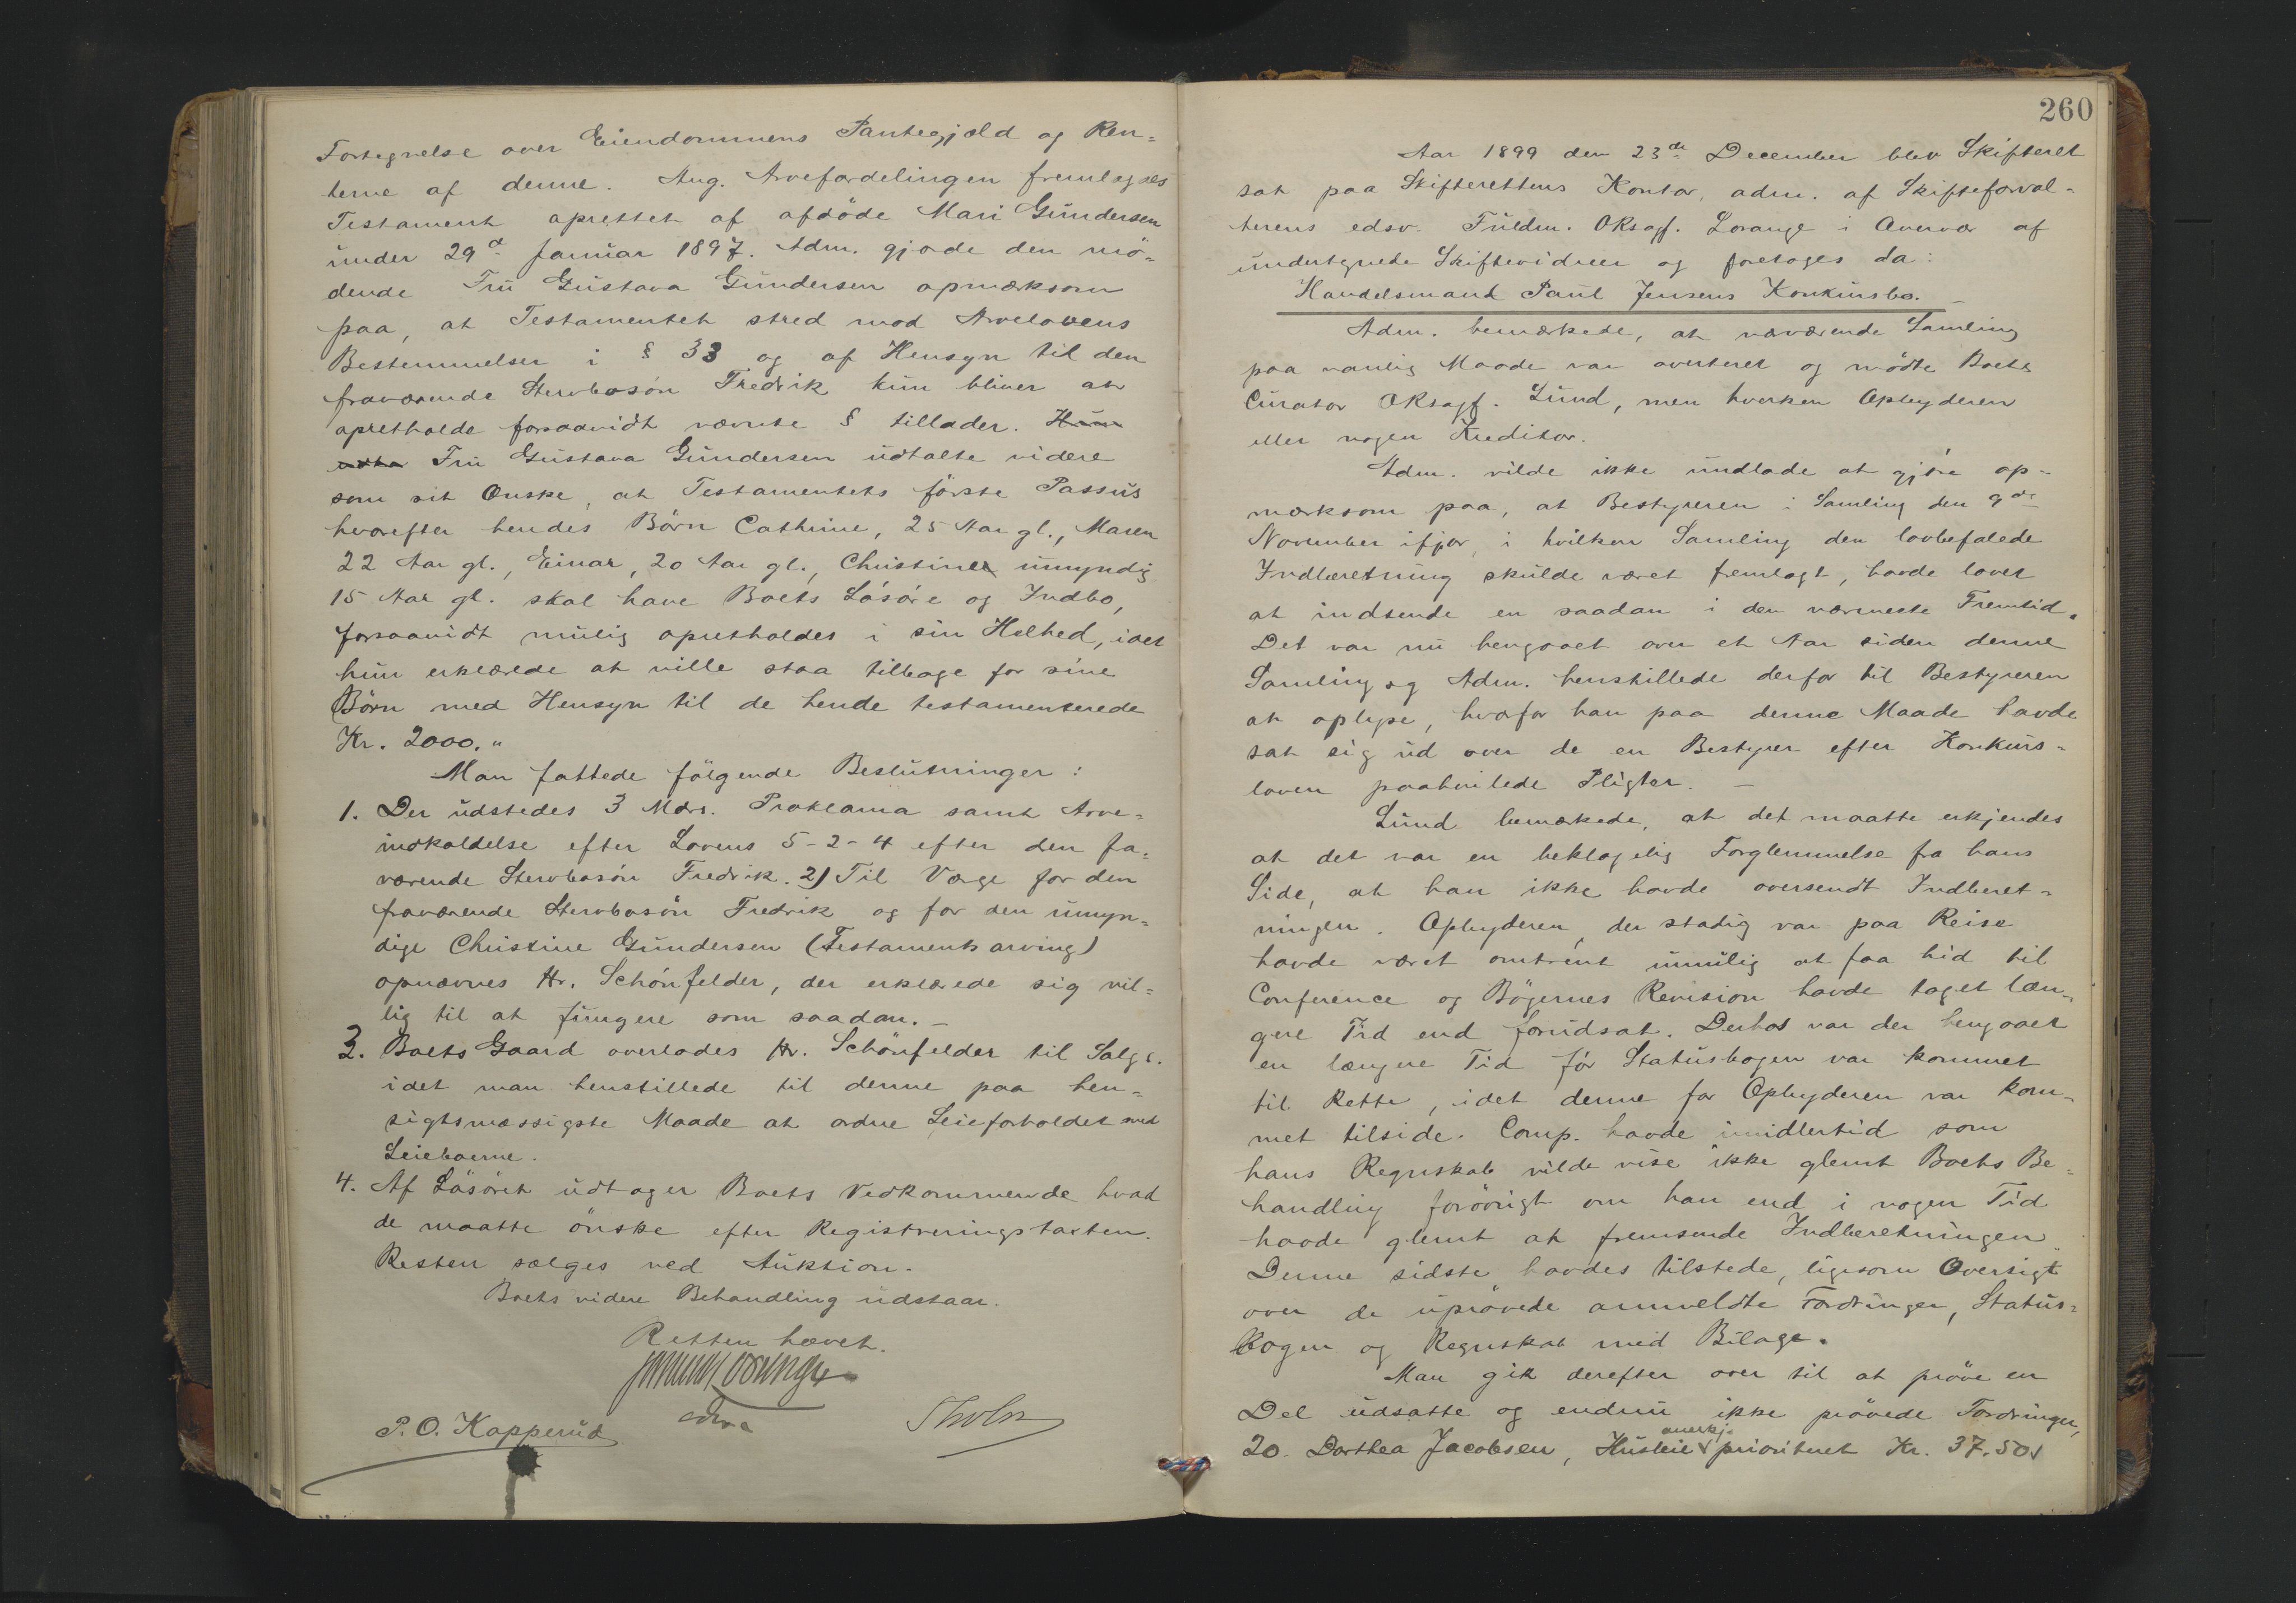 Fortegnelse over Eiendommens Pantegjæld og Ren=
terne af denne. Ang. Arvefordelingen fremlagdes
Testament oprettet af afdöde Mari Gundersen
under 29d Januar 1897. Adm. gjorde den mö=
dende Fru Gustava Gundersen opmærksom
paa, at Testamentet stred mod Arvelovens
Bestemmelser i § 33 og af Hensyn til den
fraværende Stervbosön Fredrik kun bliver at
opretholde forsaavidt nævnte § tillader. Hun
udta Fru Gustava Gundersen udtalte videre
som sit Önske, at Testamentets förste Passus
hvorefter hendes Börn Cathrine, 25 Aar gl., Maren
22 Aar gl., Einar, 20 Aar gl., Christine umyndig
15 Aar gl. skal have Boets Lösöre og Indbo,
forsaavidt mulig opretholdes i sin Helhed, idet
hun erklærede at ville staa tilbage for sine
Börn med Hensyn til de hende testamenterede
Kr. 2000."
Man fattede fölgende Beslutninger:
1. Der udstedes 3 Mdrs. Proklama samt Arve=
indkaldelse efter Lovens 5-2-4 efter den fra=
værende Stervbosön Fredrik. 2) Til Værge for den
fraværende Stervbosön Fredrik og for den umyn=
dige Christine Gundersen (Testamentsarving)
opnævnes Hr. Schönfelder, der erklærede sig vil=
lig til at fungere som saadan. –
3. Boets Gaard overlades Hr. Schönfelder til Salgs.
idet man henstillede til denne paa hen=
sigtsmæssigste Maade at ordne Leieforholdet med
Leieboerne.
4. Af Lösöret udtager Boets Vedkommende hvad
de maatte önske efter Registreringstaxten.
Resten sælges ved Auktion.
Boets videre Behandling udstaar.
Retten hævet.
P. O. Kapperud
260
Aar 1899 den 23de December blev Skifteret
sat paa Skifterettens Kontor, adm. af Skifteforval=
terens edsv. Fuldm. OKsagf. Lorange i Overvær af
undertegnede Skiftevidner og foretoges da:
Handelsmand Paul Jensens Konkursbo. –
Adm. bemærkede, at nærværende Samling
paa vanlig Maade var averteret og mödte Boets
Curator OKsagf. Lund, men hverken Opbyderen
eller nogen Kreditor.
Adm. vilde ikke undlade at gjöre op=
mærksom paa, at Bestyreren i Samling den 9de
November ifjor, i hvilken Samling den lovbefalede
Indberetning skulde været fremlagt, havde lovet
at indsende en saadan i den nærmeste Fremtid.
Det var nu hengaaet over et Aar siden denne
Samling og Adm. henstillede derfor til Bestyreren
at oplyse, hvorfor han paa denne Maade havde
sat sig ud over de en Bestyrer efter Konkurs=
loven paahvilede Pligter. –
Lund bemærkede, at det maatte erkjendes
at det var en beklagelig Forglemmelse fra hans
Side, at han ikke havde oversendt Indberet=
ningen. Opbyderen, der stadig var paa Reise
havde været omtrent umulig at faa hid til
Conference og Bögernes Revision havde taget læn=
gere Tid end forudsat. Derhos var der hengaaet
en længere Tid för Statusbogen var kommet
til Rette, idet denne for Opbyderen var kom=
met tilside. Comp. havde imidlertid som
hans Regnskab vilde vise ikke glemt Boets Be=
handling forövrigt om han end i nogen Tid
havde glemt at fremsende Indberetningen.
Denne sidste havdes tilstede, ligesom Oversigt
over de uprövede anmeldte Fordringer, Status=
bogen og Regnskab med Bilage.
Man gik derefter over til at pröve en
Del udsatte og endnu ikke prövede Fordringer,
20. Dorthea Jacobsen, Husleie anerkj. prioriteret Kr. 37.50